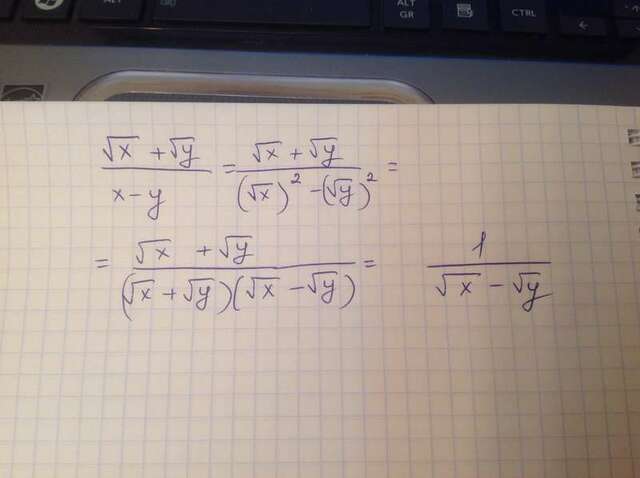 ALT
ALT GR
CTRL
hp
(√x + √y)/(x - y) = (√x + √y)/((√x)² - (√y)²) =
= (√x + √y)/((√x + √y)(√x - √y)) = 1/(√x - √y)